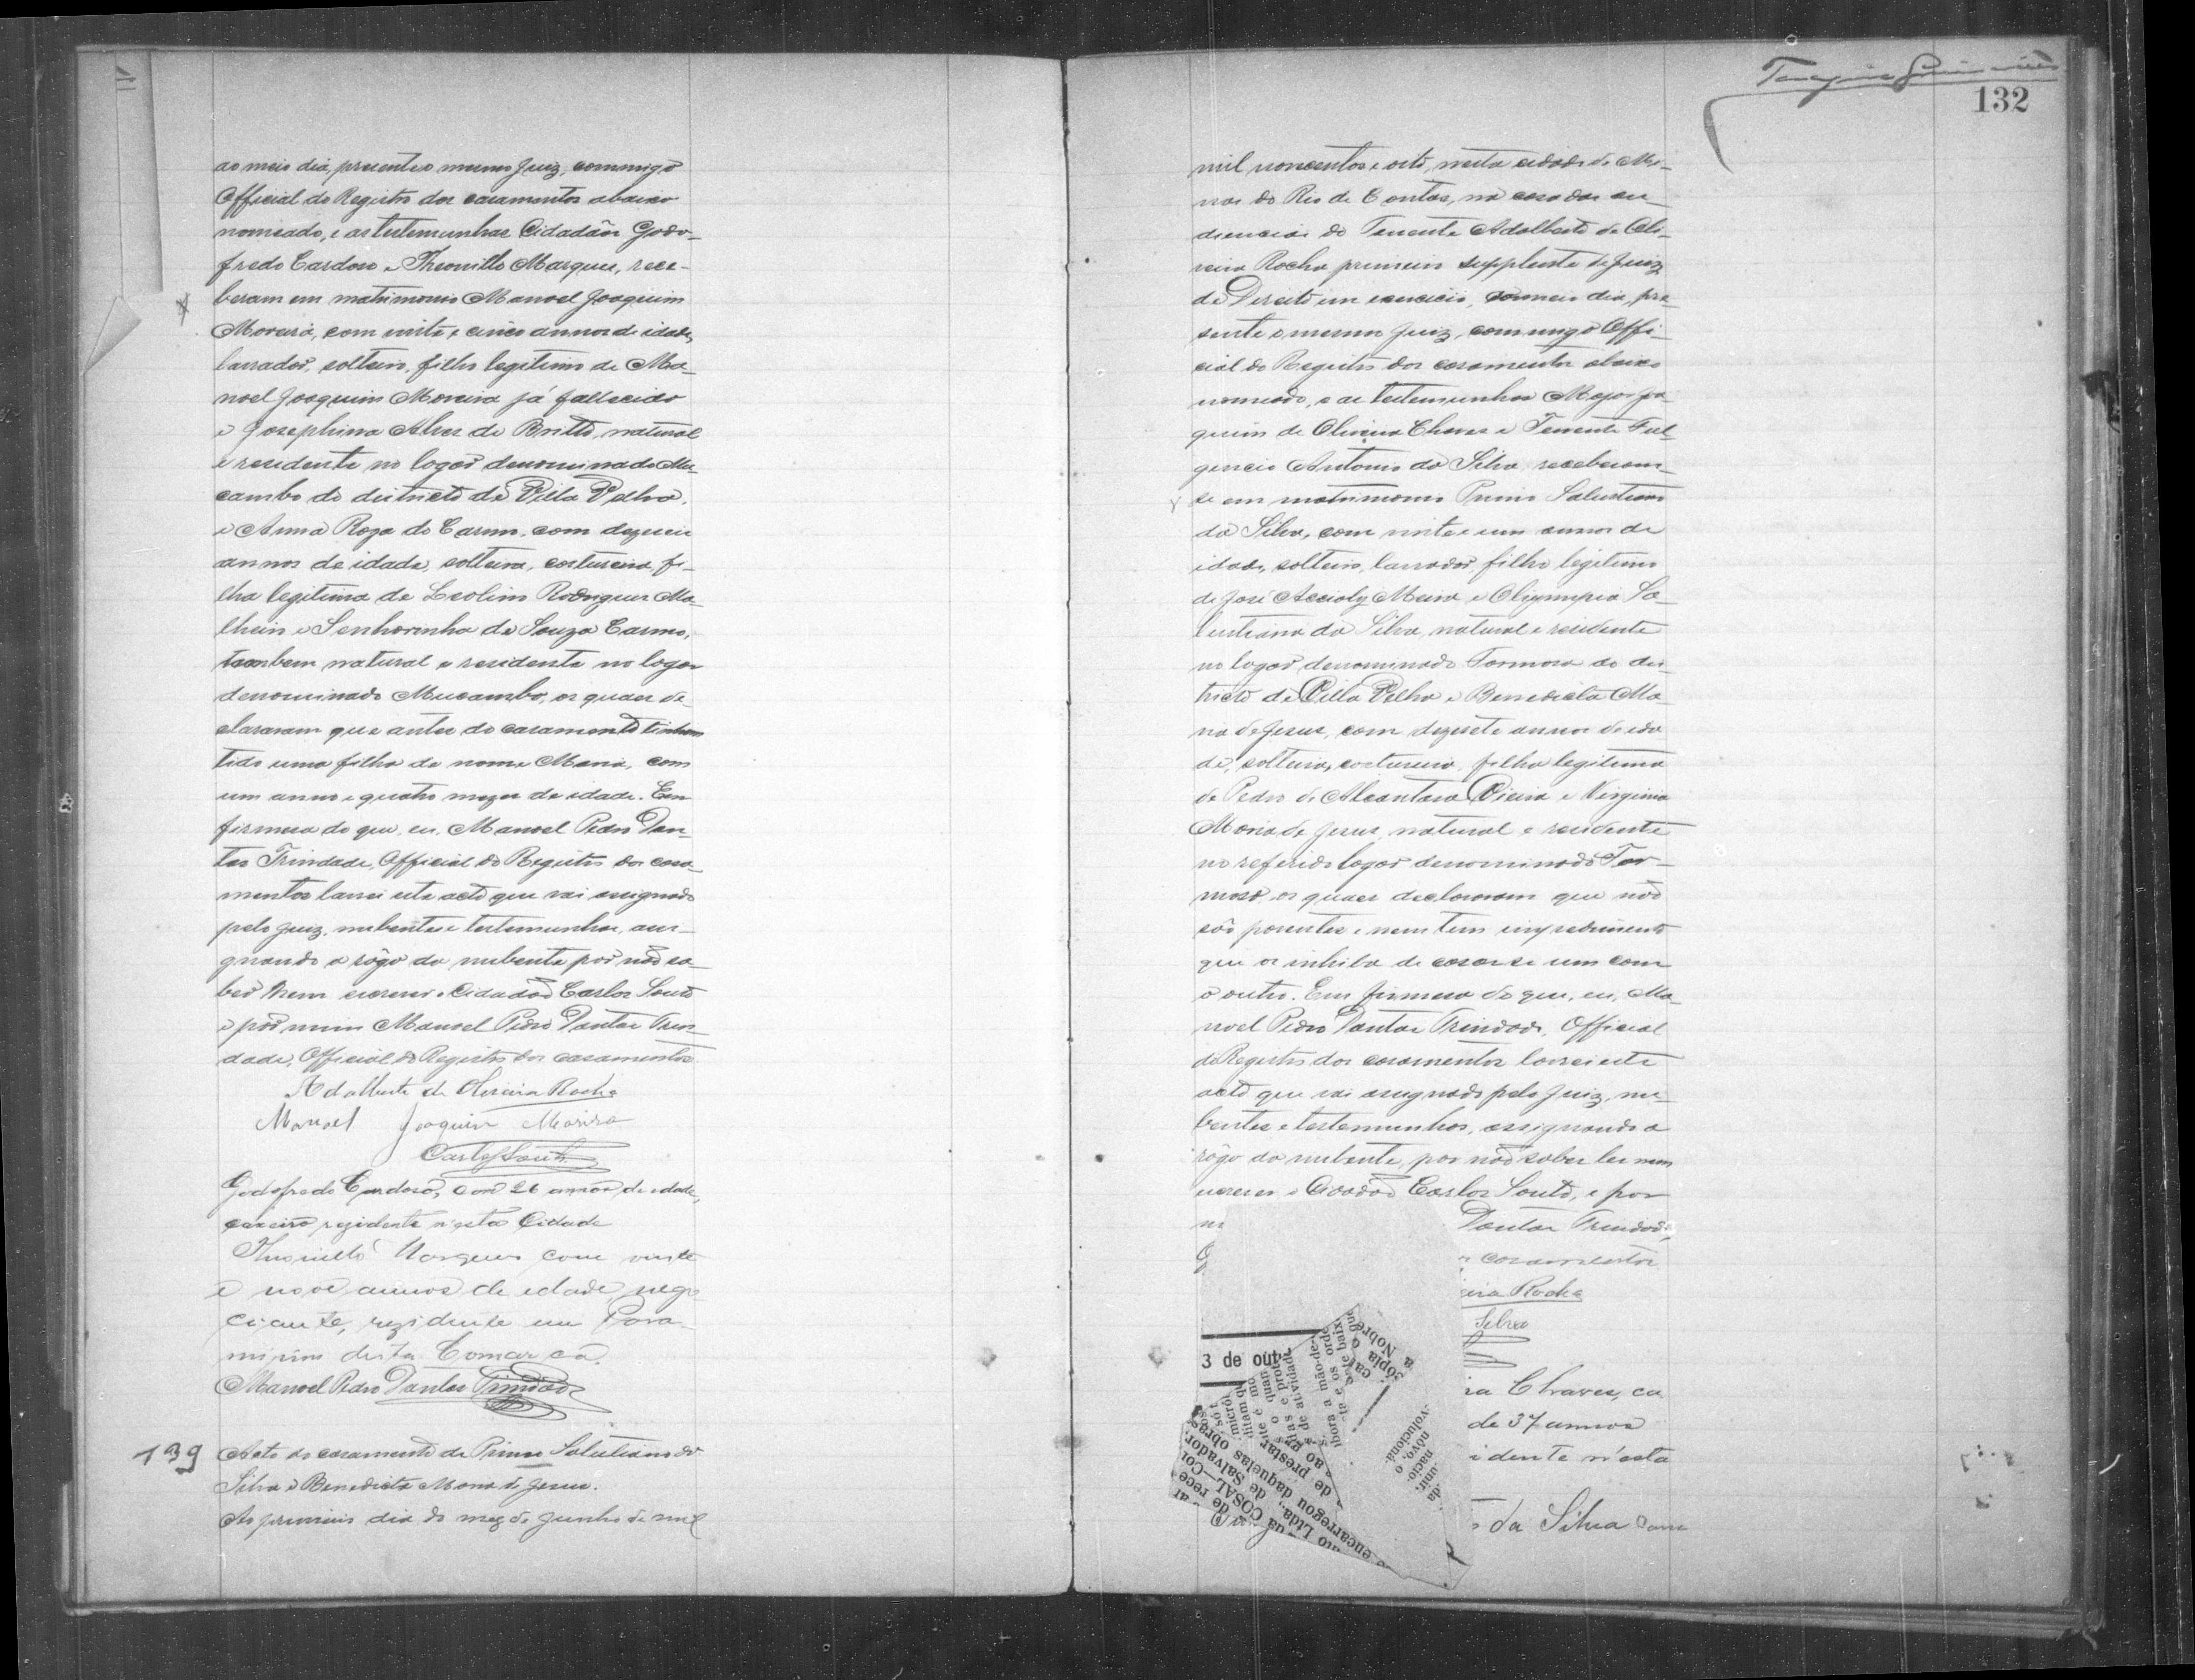 ao meio dia, presente o mesmo Juiz, commigo
Official do Registro dos casamentos abaixo
nomeado, e as testemunhas Cidadãos Godo-
fredo Cardoso e Theonillo Marques, rece-
beram em matrimonio Manoel Joaquim
Moreira, com vinte e cinco annos de idade,
lavrador, solteiro, filho legitimo de Ma-
noel Joaquim Moreira já fallecido
e Josephina Alves de Britto, natural
e residente no logar denominado Mu-
cambo do districto de Villa Velha,
e Anna Roza do Carmo, com dezeseis
annos de idade, solteira, costureira, fi-
lha legitima de Isolino Rodrigues Ma-
lheiro e Senhorinha de Souza Carmo,
tambem natural e residente no logar
denominado Mucambo, os quaes de-
clararam que antes do casamento tinham
tido uma filha de nome Maria, com
um anno e quatro mezes de idade. Em
firmesa do que, eu, Manoel Pedro Dan-
tas Trindade, Official do Registro dos casa-
mentos lavrei este acto que vai assignado
pelo Juiz, nubentes e testemunhas, assi-
gnando a rôgo da nubente por não sa-
ber nem escrever o Cidadão Carlos Souto
e por mim Manoel Pedro Dantas Trin-
dade, Official do Registro dos casamentos
Adalberto de Oliveira Rocha
Manoel Joaquim Moreira
Carlos Souto
Godofredo Cardoso, com 26 annos de idade,
caxeiro rezidente n'esta Cidade
Theonillo Marques com vinte
e nove annos de idade, nego-
ciante, rezidente em Para-
mirim desta Comarca.
Manoel Pedro Dantas Trindade
139 Acto do casamento de Primo Salustiano da
Silva e Benedicta Maria de Jesus.
Ao primeiro dia do mez de Junho de mil
132
mil novecentos e oito, nesta cidade de Mi-
nas do Rio de Contas, na casa das au-
diencias do Tenente Adalberto de Oli-
veira Rocha primeiro supplente do Juiz
de Direito em exercicio, ao meio dia, pre-
sente o mesmo Juiz, commigo Offi-
cial do Registro dos casamentos abaixo
nomeado, e as testemunhas Major Joa-
quim de Oliveira Chaves e Tenente Ful-
gencio Antonio da Silva, receberam-
se em matrimonio Primo Salustiano
da Silva, com vinte e um annos de
idade, solteiro, lavrador, filho legitimo
de José Accioly Meira e Olympia Sa-
lustiana da Silva, natural e residente
no logar denominado Formosa do dis-
tricto de Villa Velha e Benedicta Ma-
ria de Jesus, com dezesete annos de ida-
de, solteira, costureira, filha legitima
de Pedro de Alcantara Vieira e Virginia
Maria de Jesus, natural e residente
no referido logar denominado For-
mosa, os quaes declararam que não
são parentes e nem tem impedimento
que os inhiba de casar-se um com
o outro. Em firmesa do que, eu, Ma-
noel Pedro Dantas Trindade, Official
do Registro dos casamentos lavrei este
acto que vai assignado pelo Juiz, nu-
bentes e testemunhas, assignando a
rôgo da nubente, por não saber ler nem
escrever o Cidadão Carlos Souto, e por
Dantas Trindade,
casamentos
eira Rocha
Silva
3 de out
ra Chaves, ca
de 37 annos
idente n'esta
da Silva com